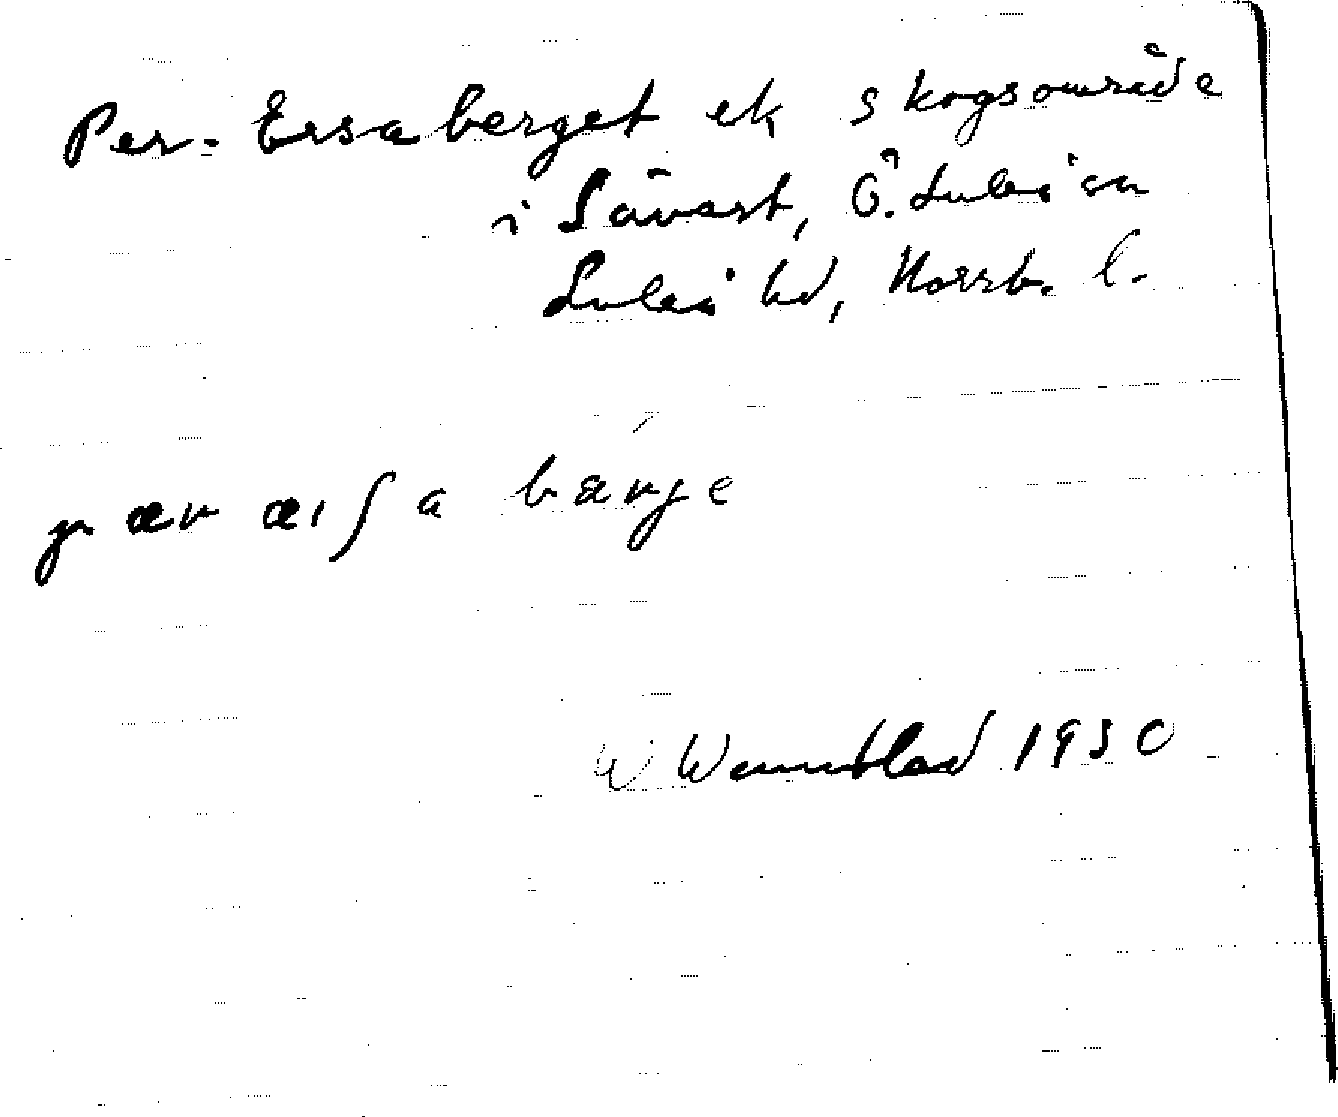 Per-Ersaberget ek skogsområde
i Sävast, Ö. Luleå sn
Luleå hd, Norrb. l.
pær æʃa bærje
W Wennblad 1930